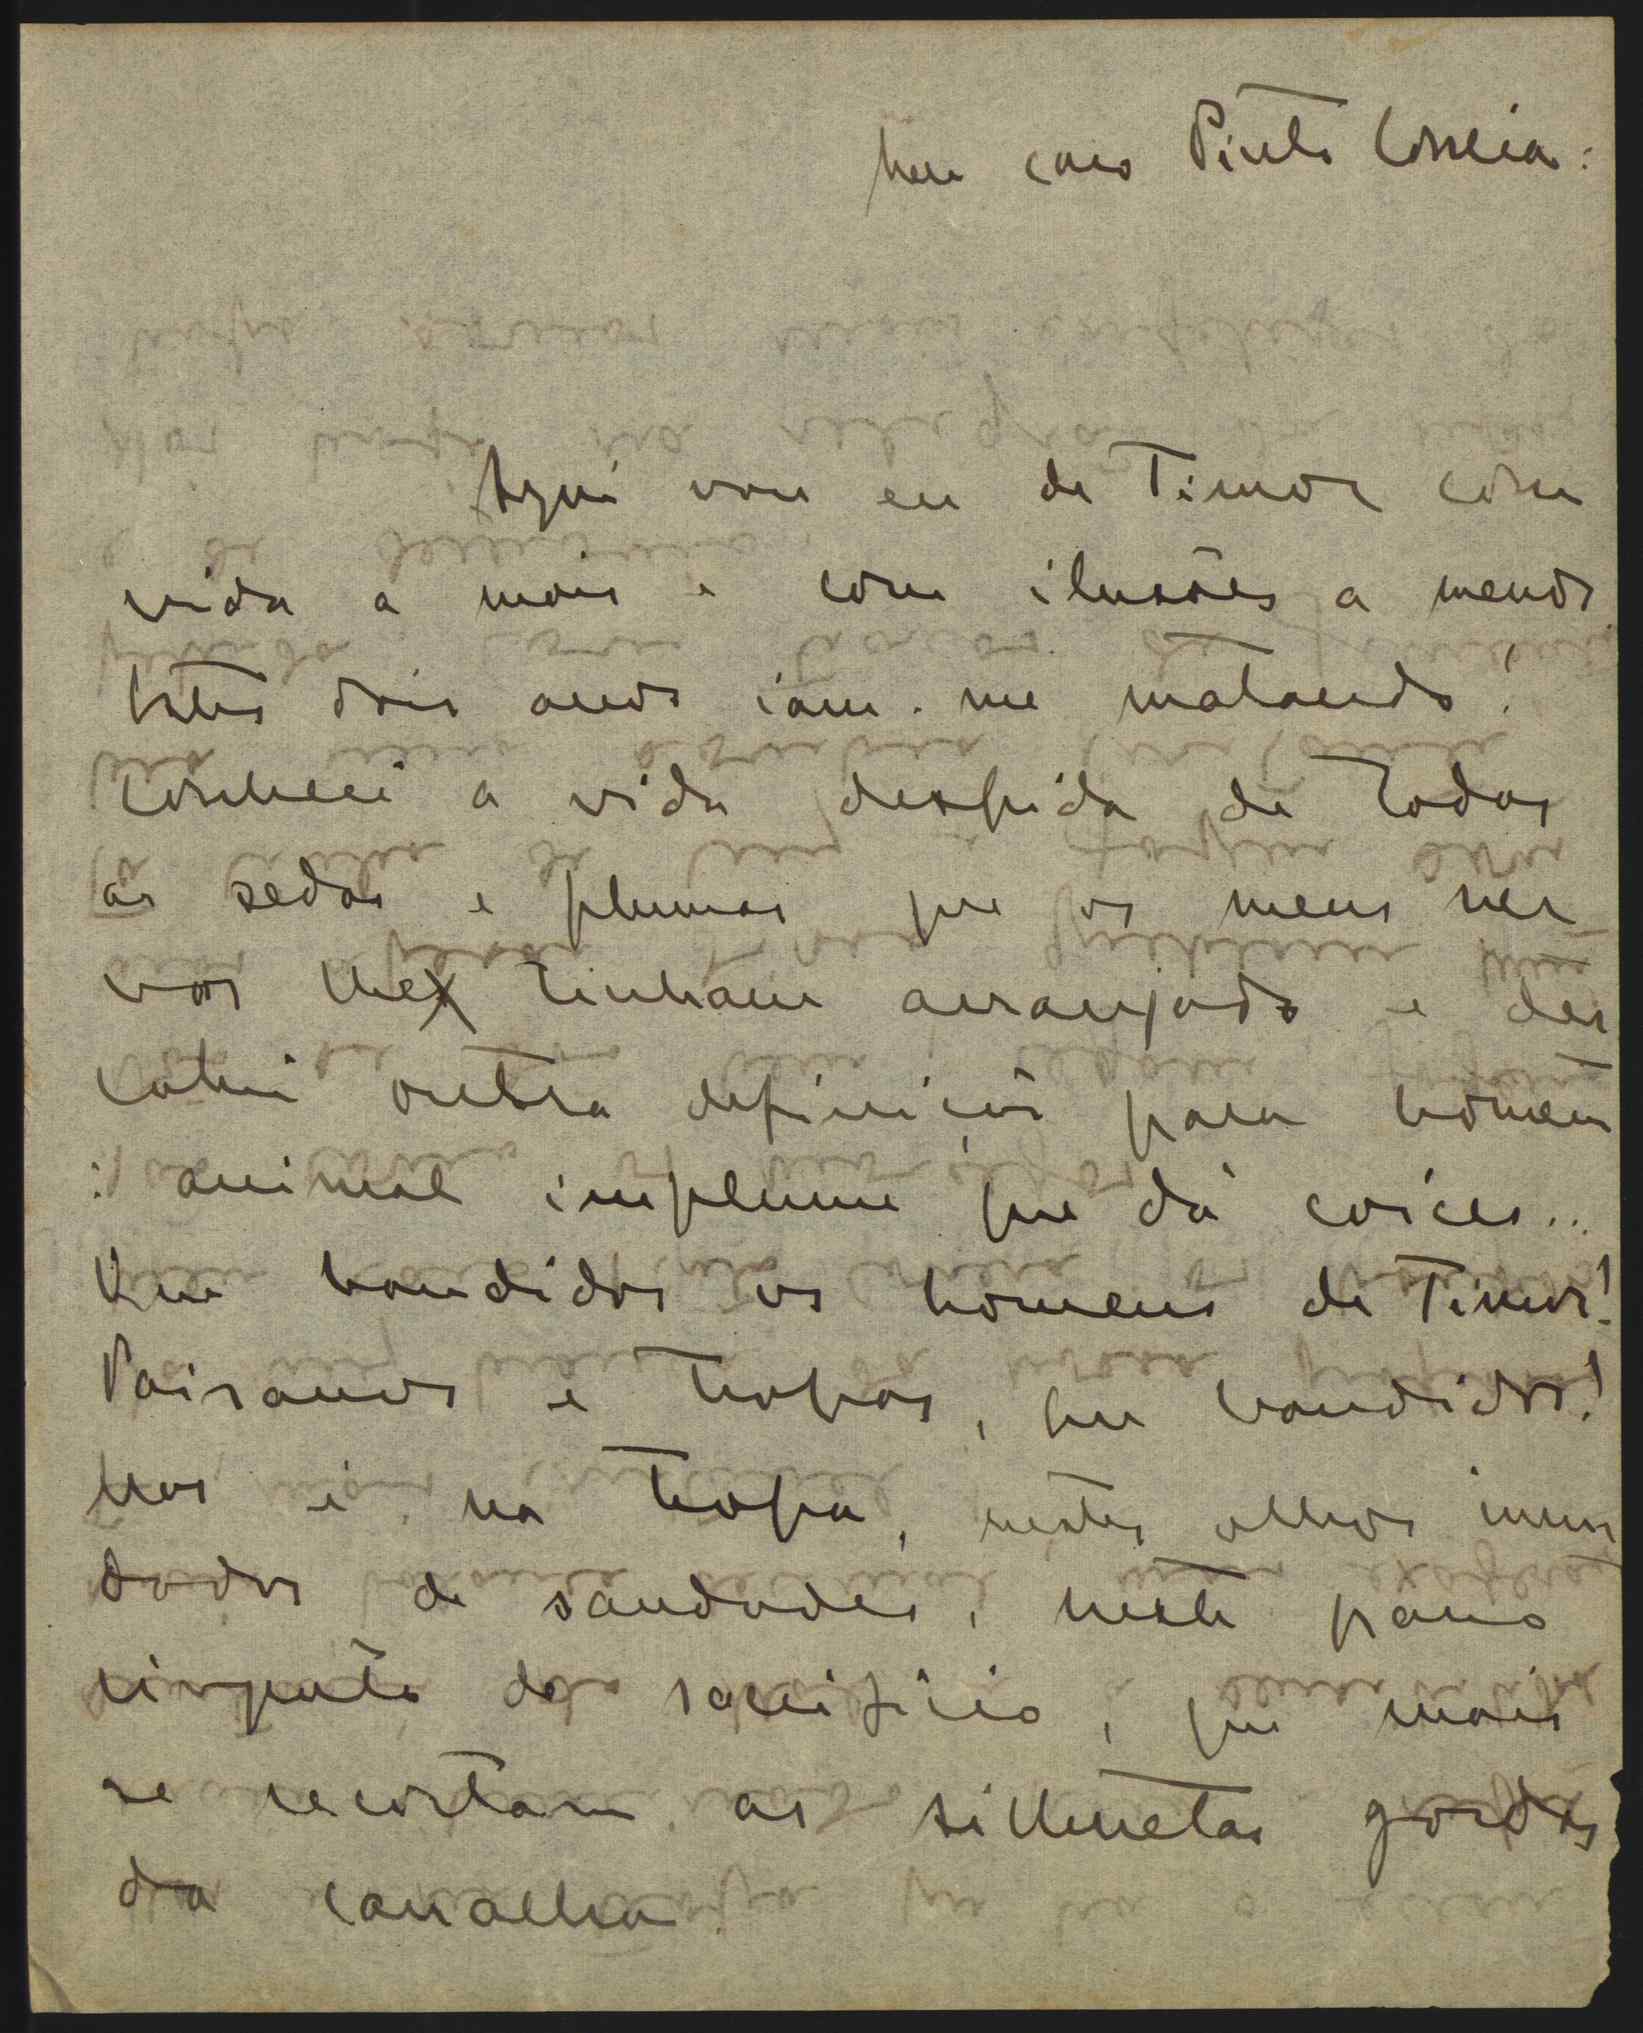 Meu caro Pinto Correia:
Aqui vou eu de Timor com
vida a mais e com ilusões a menos.
Estes dois anos iam-me matando!
Conheci a vida despida de todas
as sedas e plumas que os meus ner
vos lhe tinham arranjado e des
cobri outra definição para homem
: animal implume que dá coices...
Que bandidos os homens de Timor!
Paisanos e tropas, que bandidos!
Mas é na tropa, nestes olhos inun
dados de saudades, neste pano
cinzento do sacrifício, que mais
se recortam as silhuetas gordas
da canalha.